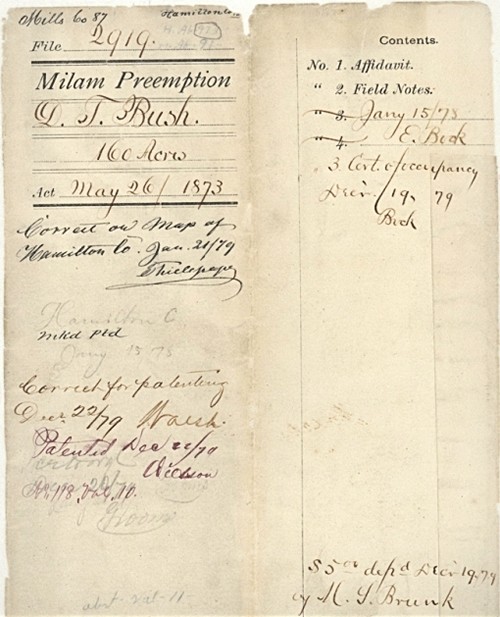 Mills Co 87
Hamilton Co
File 2919.
Milam Preemption
D. T. Bush.
160 Acres
Act May 26/ 1873
Correct on Map of
Hamilton Co. Jan. 21/79
Thielepape
Hamilton C
mkd ptd
Jany 15 78
Correct for patenting
Decr 22/79 Walsh.
Patented Dec 22/79
No. 118, Vol. 10.
Groom
abst. Vol. 11
Contents.
No. 1. Affidavit.
" 2. Field Notes.
" 3. Jany 15/78
" 4. E. Bock
3. Cert. of occupancy
Decr. 19, 79
Bock
$5 00 depd Decr 19, 79
by M. S. Brunk